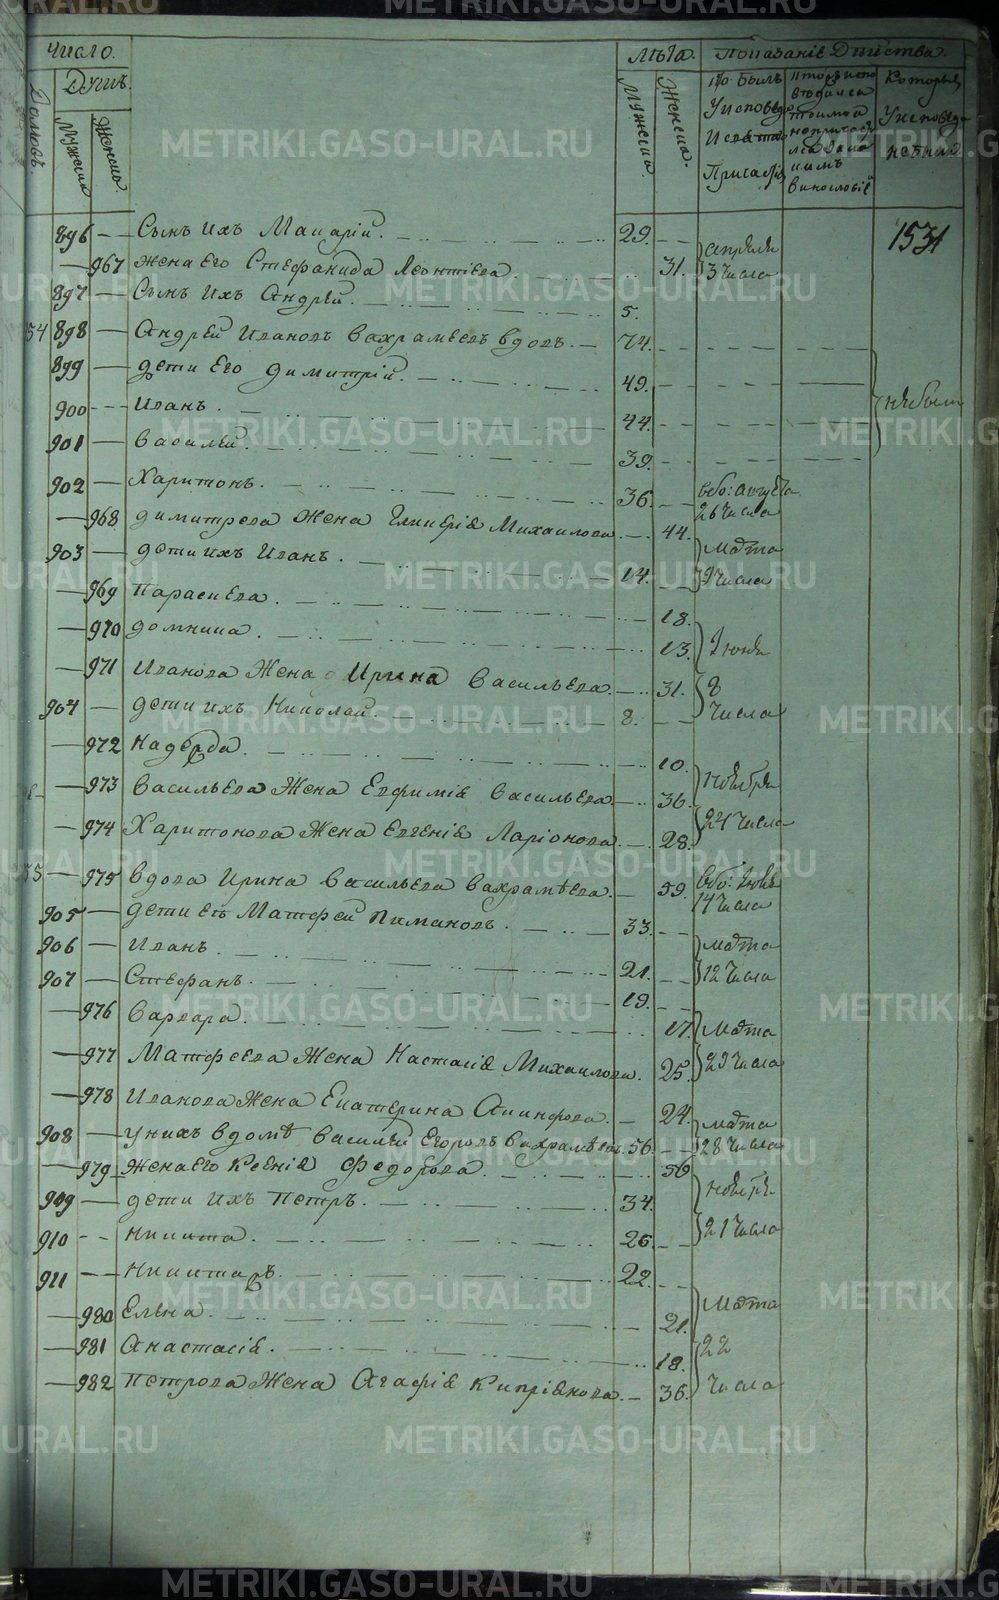 Число.
Лѣта. Показаніе Действа.
Домовъ.
Душъ.
Мужеска
Женска
Мужеска
Женска.
Кто былъ
У исповеди
И свята
Причастія
Которые
У исповеди
не были
1531
896 — Сынъ ихъ Макарій. 29.
967 жена Его Стефанида Леонтіева 31.
апреля
3 числа
897 — Сынъ ихъ Андрей. 5.
54 898 — Андрей Ивановъ Вахрамеевъ вдовъ. — 74.
899 — дети Его Димитрій. 49.
900 Иванъ. 44.
не были
901 — Василей. 39.
902 — Харитонъ. 36.
августа
26 числа
968 димитрева Жена Гликерія Михаилова 44.
903 — дети ихъ Иванъ. 14.
марта
9 числа
969 Параскева 18.
970 домника. 13.
971 Иванова Жена Ирина Васильева. 31.
Іюня
8
числа
904 — дети ихъ Николай. 8.
972 Надежда 10.
973 Васильева Жена Евфимія Васильева 36.
Ноября
24 числа
974 Харитонова Жена Евгенія Ларіонова 28.
55 975 вдова Ирина Васильева Вахрамѣева. — 59.
14 числа
905 — дети Ея Матфей Пимановъ. 33.
906 — Иванъ 21.
марта
12 числа
907 — Стефанъ. 19.
976 Варвара. 17.
977 Матфеева Жена Настасія Михаилова. 25.
марта
29 числа
978 Иванова Жена Екатерина 24.
908 — У нихъ в домѣ Василій Егоровъ Вахрамѣевъ 56.
марта
28 числа
979 Жена Его Ксенія Федорова 56
909 — дети ихъ Петръ. 34.
ноября
21 числа
910 Никита. 26.
911 Никита 22.
980 Елена. 21.
981 Анастасія. 18.
марта
22
числа
982 Петрова Жена Агафія Кипріянова 36.
METRIKI.GASO-URAL.RU